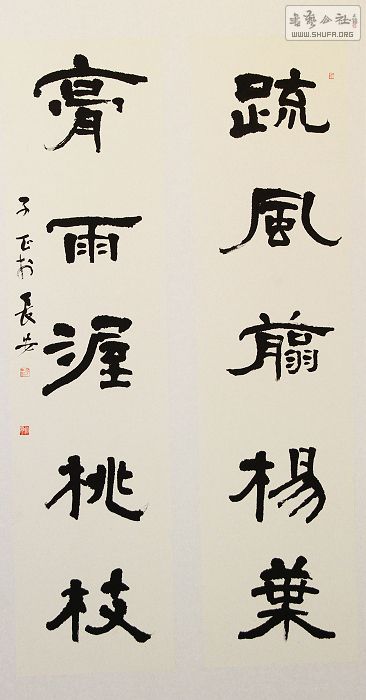 疏風翦楊葉
膏雨渥桃枝
子正於長安
书艺公社
WWW.SHUFA.ORG